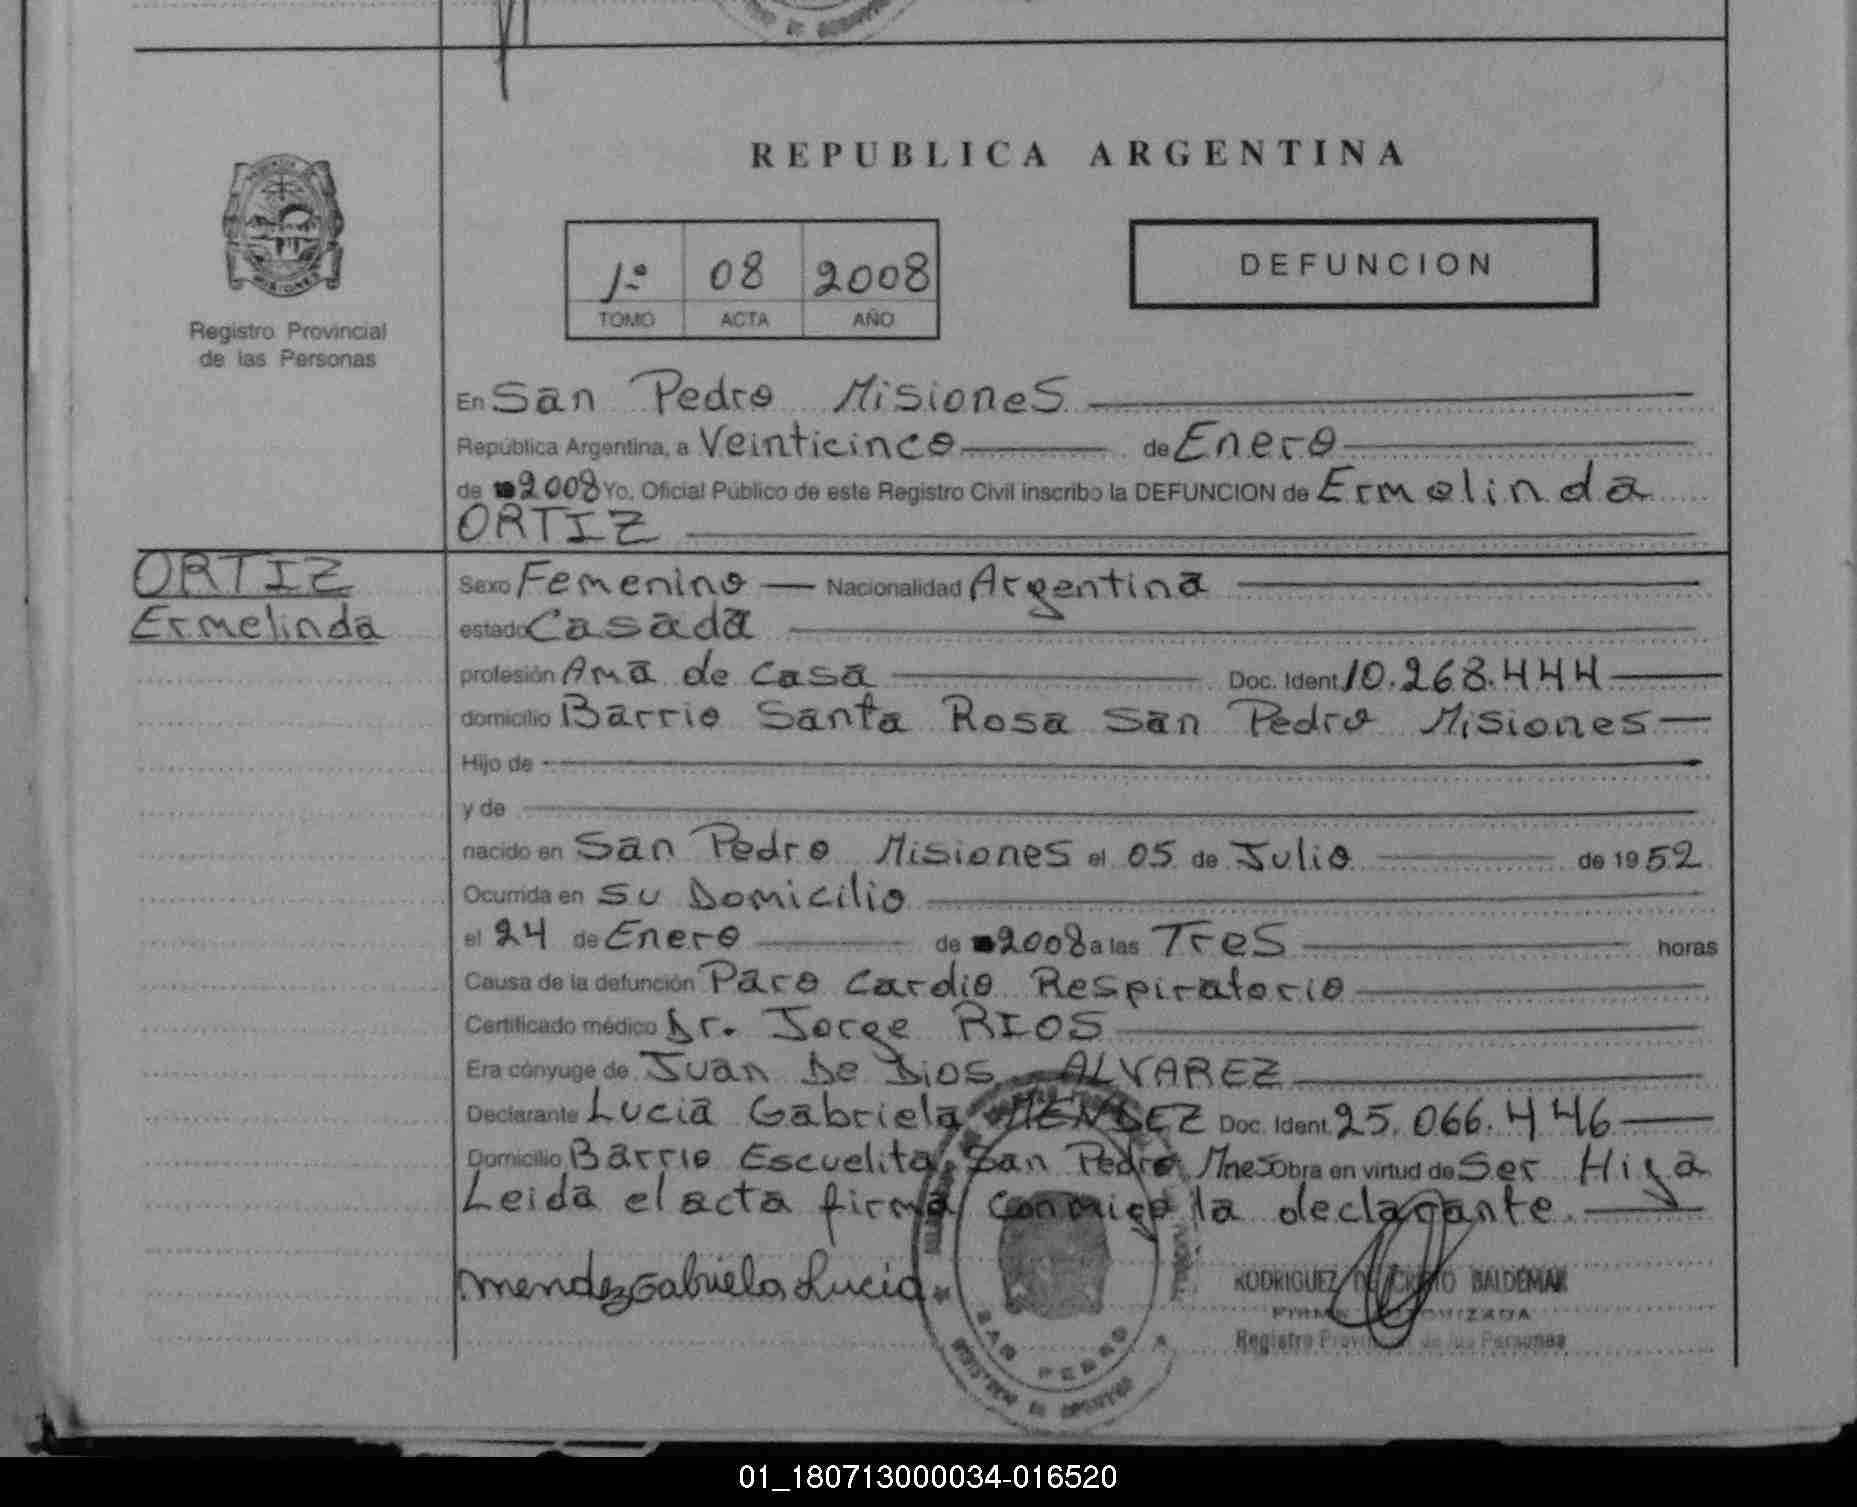 REPUBLICA ARGENTINA
1º 08 2008
TOMO ACTA AÑO
DEFUNCION
Registro Provincial
de las Personas
En San Pedro Misiones
República Argentina, a Veinticinco de Enero
de 2008 Yo, Oficial Público de este Registro Civil inscribo la DEFUNCION de Ermelinda
ORTIZ
ORTIZ
Ermelinda
Sexo Femenino Nacionalidad Argentina
estado Casada
profesión Ama de Casa Doc. Ident. 10.268.444
domicilio Barrio Santa Rosa San Pedro Misiones
Hijo de
y de
nacido en San Pedro Misiones el 05 de Julio de 1952
Ocurrida en su Domicilio
el 24 de Enero de 2008 a las Tres horas
Causa de la defunción Paro Cardio Respiratorio
Certificado médico Dr. Jorge RIOS
Era cónyuge de Juan De Dios ALVAREZ
Declarante Lucia Gabriela MENDEZ Doc. Ident. 25.066.446
Domicilio Barrio Escuelita, San Pedro Mnes Obra en virtud de Ser Hija
Leida el acta firma conmigo la declarante
Mendez Gabriela Lucia
RODRIGUEZ DE BALDEMAR
FIRMA AUTORIZADA
Registro Provincial de las Personas
SAN PEDRO
01_180713000034-016520